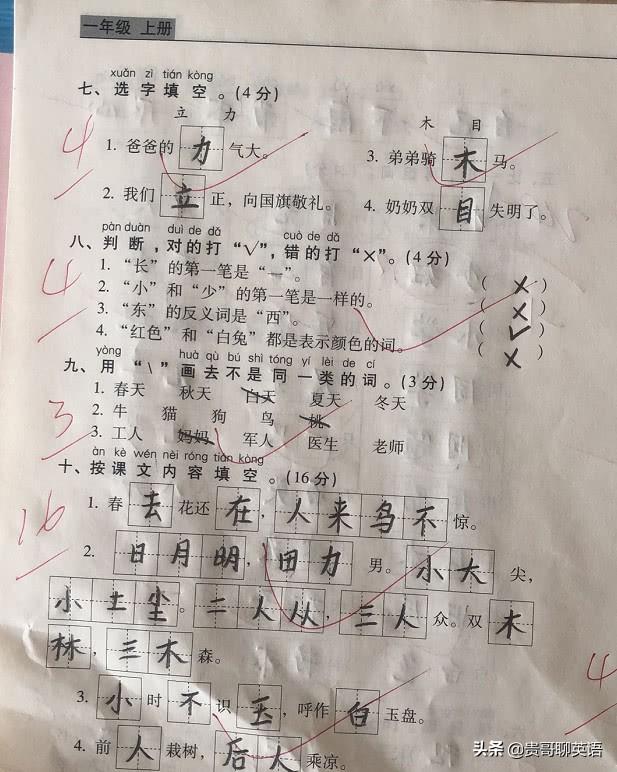 一年级 上册
xuǎn zì tián kòng
七、选字填空。(4分)
立 力 木 目
4
1. 爸爸的力气大。 3. 弟弟骑木马。
2. 我们立正，向国旗敬礼。 4. 奶奶双目失明了。
pàn duàn duì de dǎ cuò de dǎ
八、判断，对的打“√”，错的打“×”。(4分)
4
1. “长”的第一笔是“一”。 (×)
2. “小”和“少”的第一笔是一样的。 (×)
3. “东”的反义词是“西”。 (√)
4. “红色”和“白兔”都是表示颜色的词。 (×)
yòng huà qù bú shì tóng yí lèi de cí
九、用“\”画去不是同一类的词。(3分)
1. 春天 秋天 白天 夏天 冬天
2. 牛 猫 狗 鸟 桃
3
3. 工人 妈妈 军人 医生 老师
àn kè wén nèi róng tián kòng
十、按课文内容填空。(16分)
16
1. 春去花还在，人来鸟不惊。
2. 日月明，田力男。小大尖，
小土尘。二人从，三人众。双木
林，三木森。
4
3. 小时不识玉，呼作白玉盘。
4. 前人栽树，后人乘凉。
头条 @贵哥聊英语